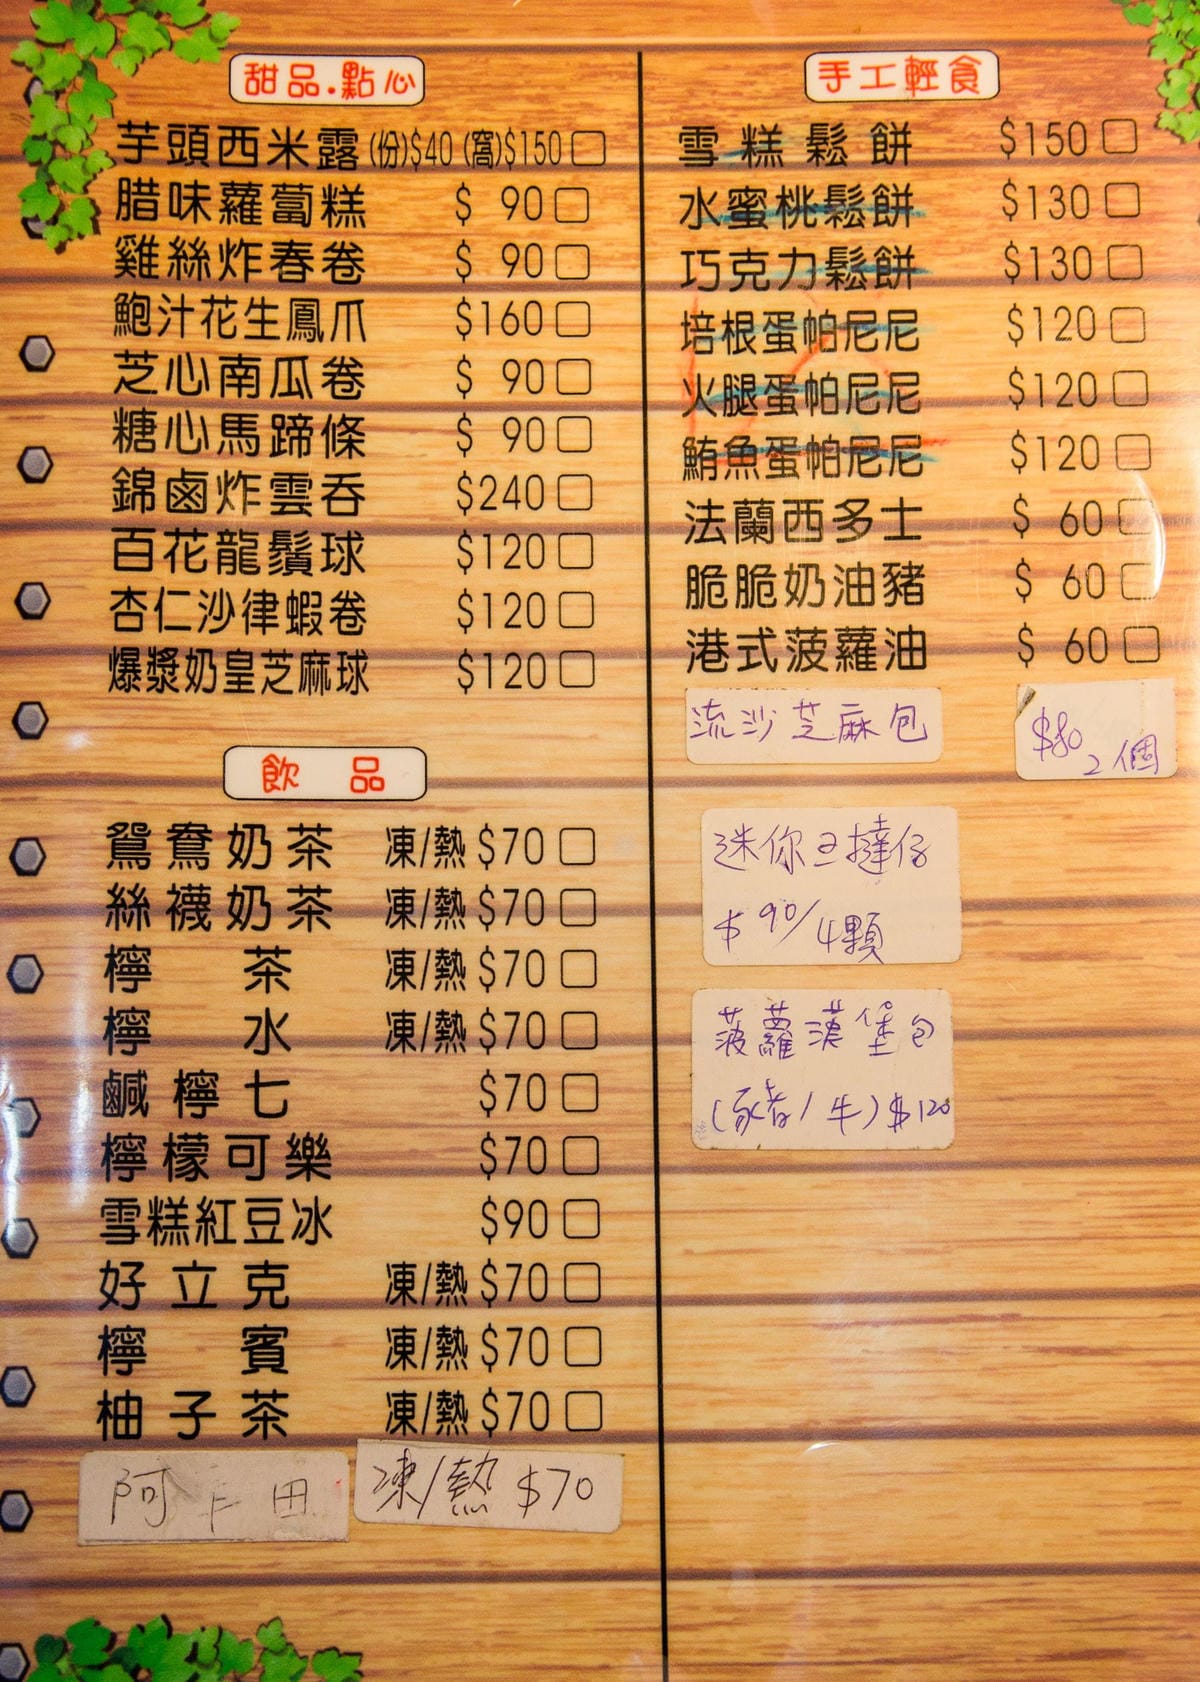 甜品.點心
芋頭西米露(份)$40 (窩)$150
腊味蘿蔔糕 $ 90
雞絲炸春卷 $ 90
鮑汁花生鳳爪 $160
芝心南瓜卷 $ 90
糖心馬蹄條 $ 90
錦鹵炸雲吞 $240
百花龍鬚球 $120
杏仁沙律蝦卷 $120
爆漿奶皇芝麻球 $120
飲 品
鴛鴦奶茶 凍/熱 $70
絲襪奶茶 凍/熱 $70
檸 茶 凍/熱 $70
檸 水 凍/熱 $70
鹹檸七 $70
檸檬可樂 $70
雪糕紅豆冰 $90
好立克 凍/熱 $70
檸 賓 凍/熱 $70
柚子茶 凍/熱 $70
阿 田 凍/熱 $70
手工輕食
雪糕鬆餅 $150
水蜜桃鬆餅 $130
巧克力鬆餅 $130
培根蛋帕尼尼 $120
火腿蛋帕尼尼 $120
鮪魚蛋帕尼尼 $120
法蘭西多士 $ 60
脆脆奶油豬 $ 60
港式菠蘿油 $ 60
流沙芝麻包 $80 2個
迷你旦撻仔
$ 90/4顆
菠蘿漢堡包
(豬/牛)$120